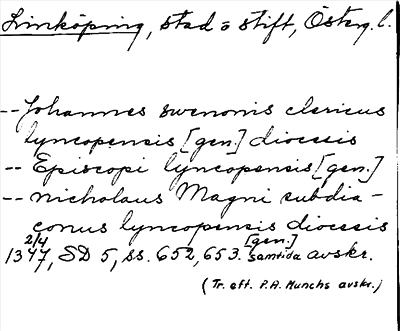 Linköping, stad o stift, Österg. l.
-- Johannes swenonis clericus
lyncopensis [gen.] diocesis
-- Episcopi lyncopensis [gen.]
-- Nicholaus Magni subdia-
conus lyncopensis diocesis
[gen.]
2/4
1347, SD 5, ss. 652, 653. samtida avskr.
(Tr. eft. P.A. Munchs avskr.)